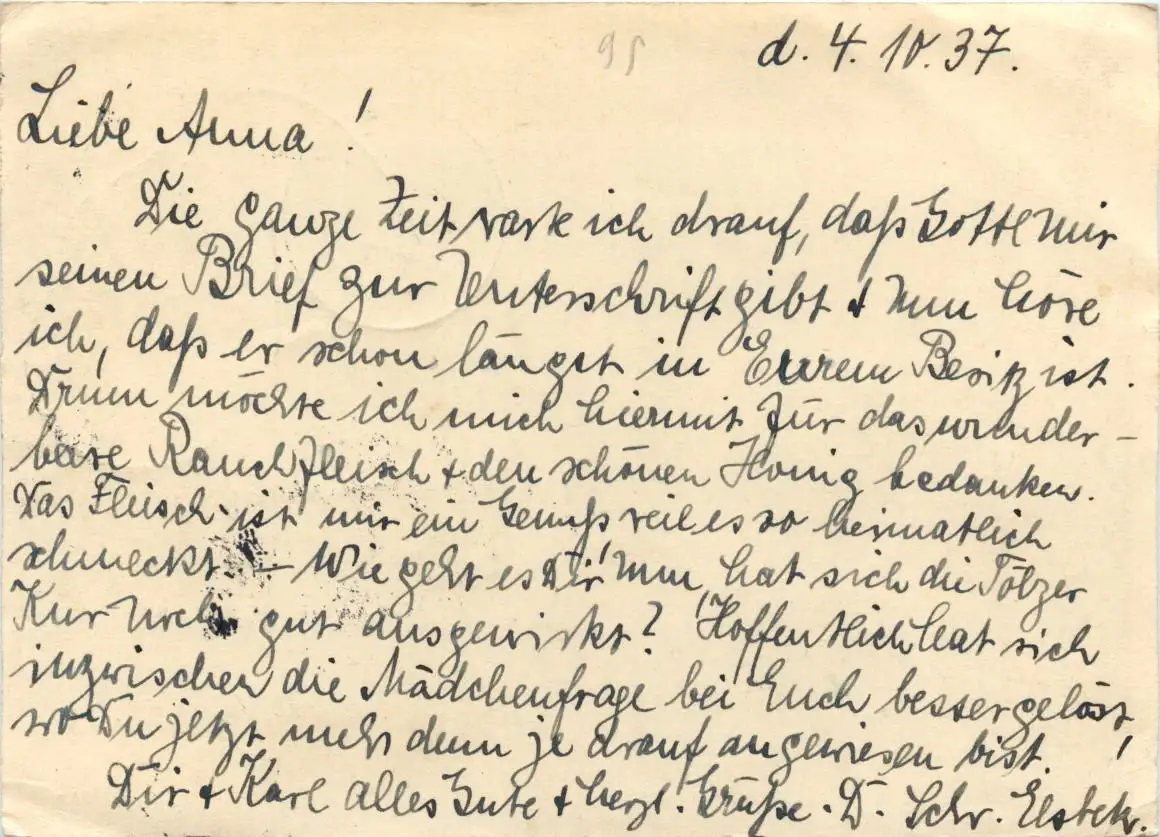 95
d. 4. 10. 37.
Liebe Anna!
Die ganze Zeit wart ich drauf, daß Gottl mir
seinen Brief zur Unterschrift gibt + nun höre
ich, daß er schon längst in Eurem Besitz ist.
Drum möchte ich mich hiermit für das wunder-
bare Rauchfleisch + den schönen Honig bedanken.
Das Fleisch ist mir ein Genuß, weil es so heimatlich
schmeckt. – Wie geht es Dir nun, hat sich die Tölzer
Kur noch gut ausgewirkt? Hoffentlich hat sich
inzwischen die Mädchenfrage bei Euch besser gelöst,
wo Du jetzt mehr denn je drauf angewiesen bist!
Dir + Karl alles Gute + herzl. Grüße. D. Schw.